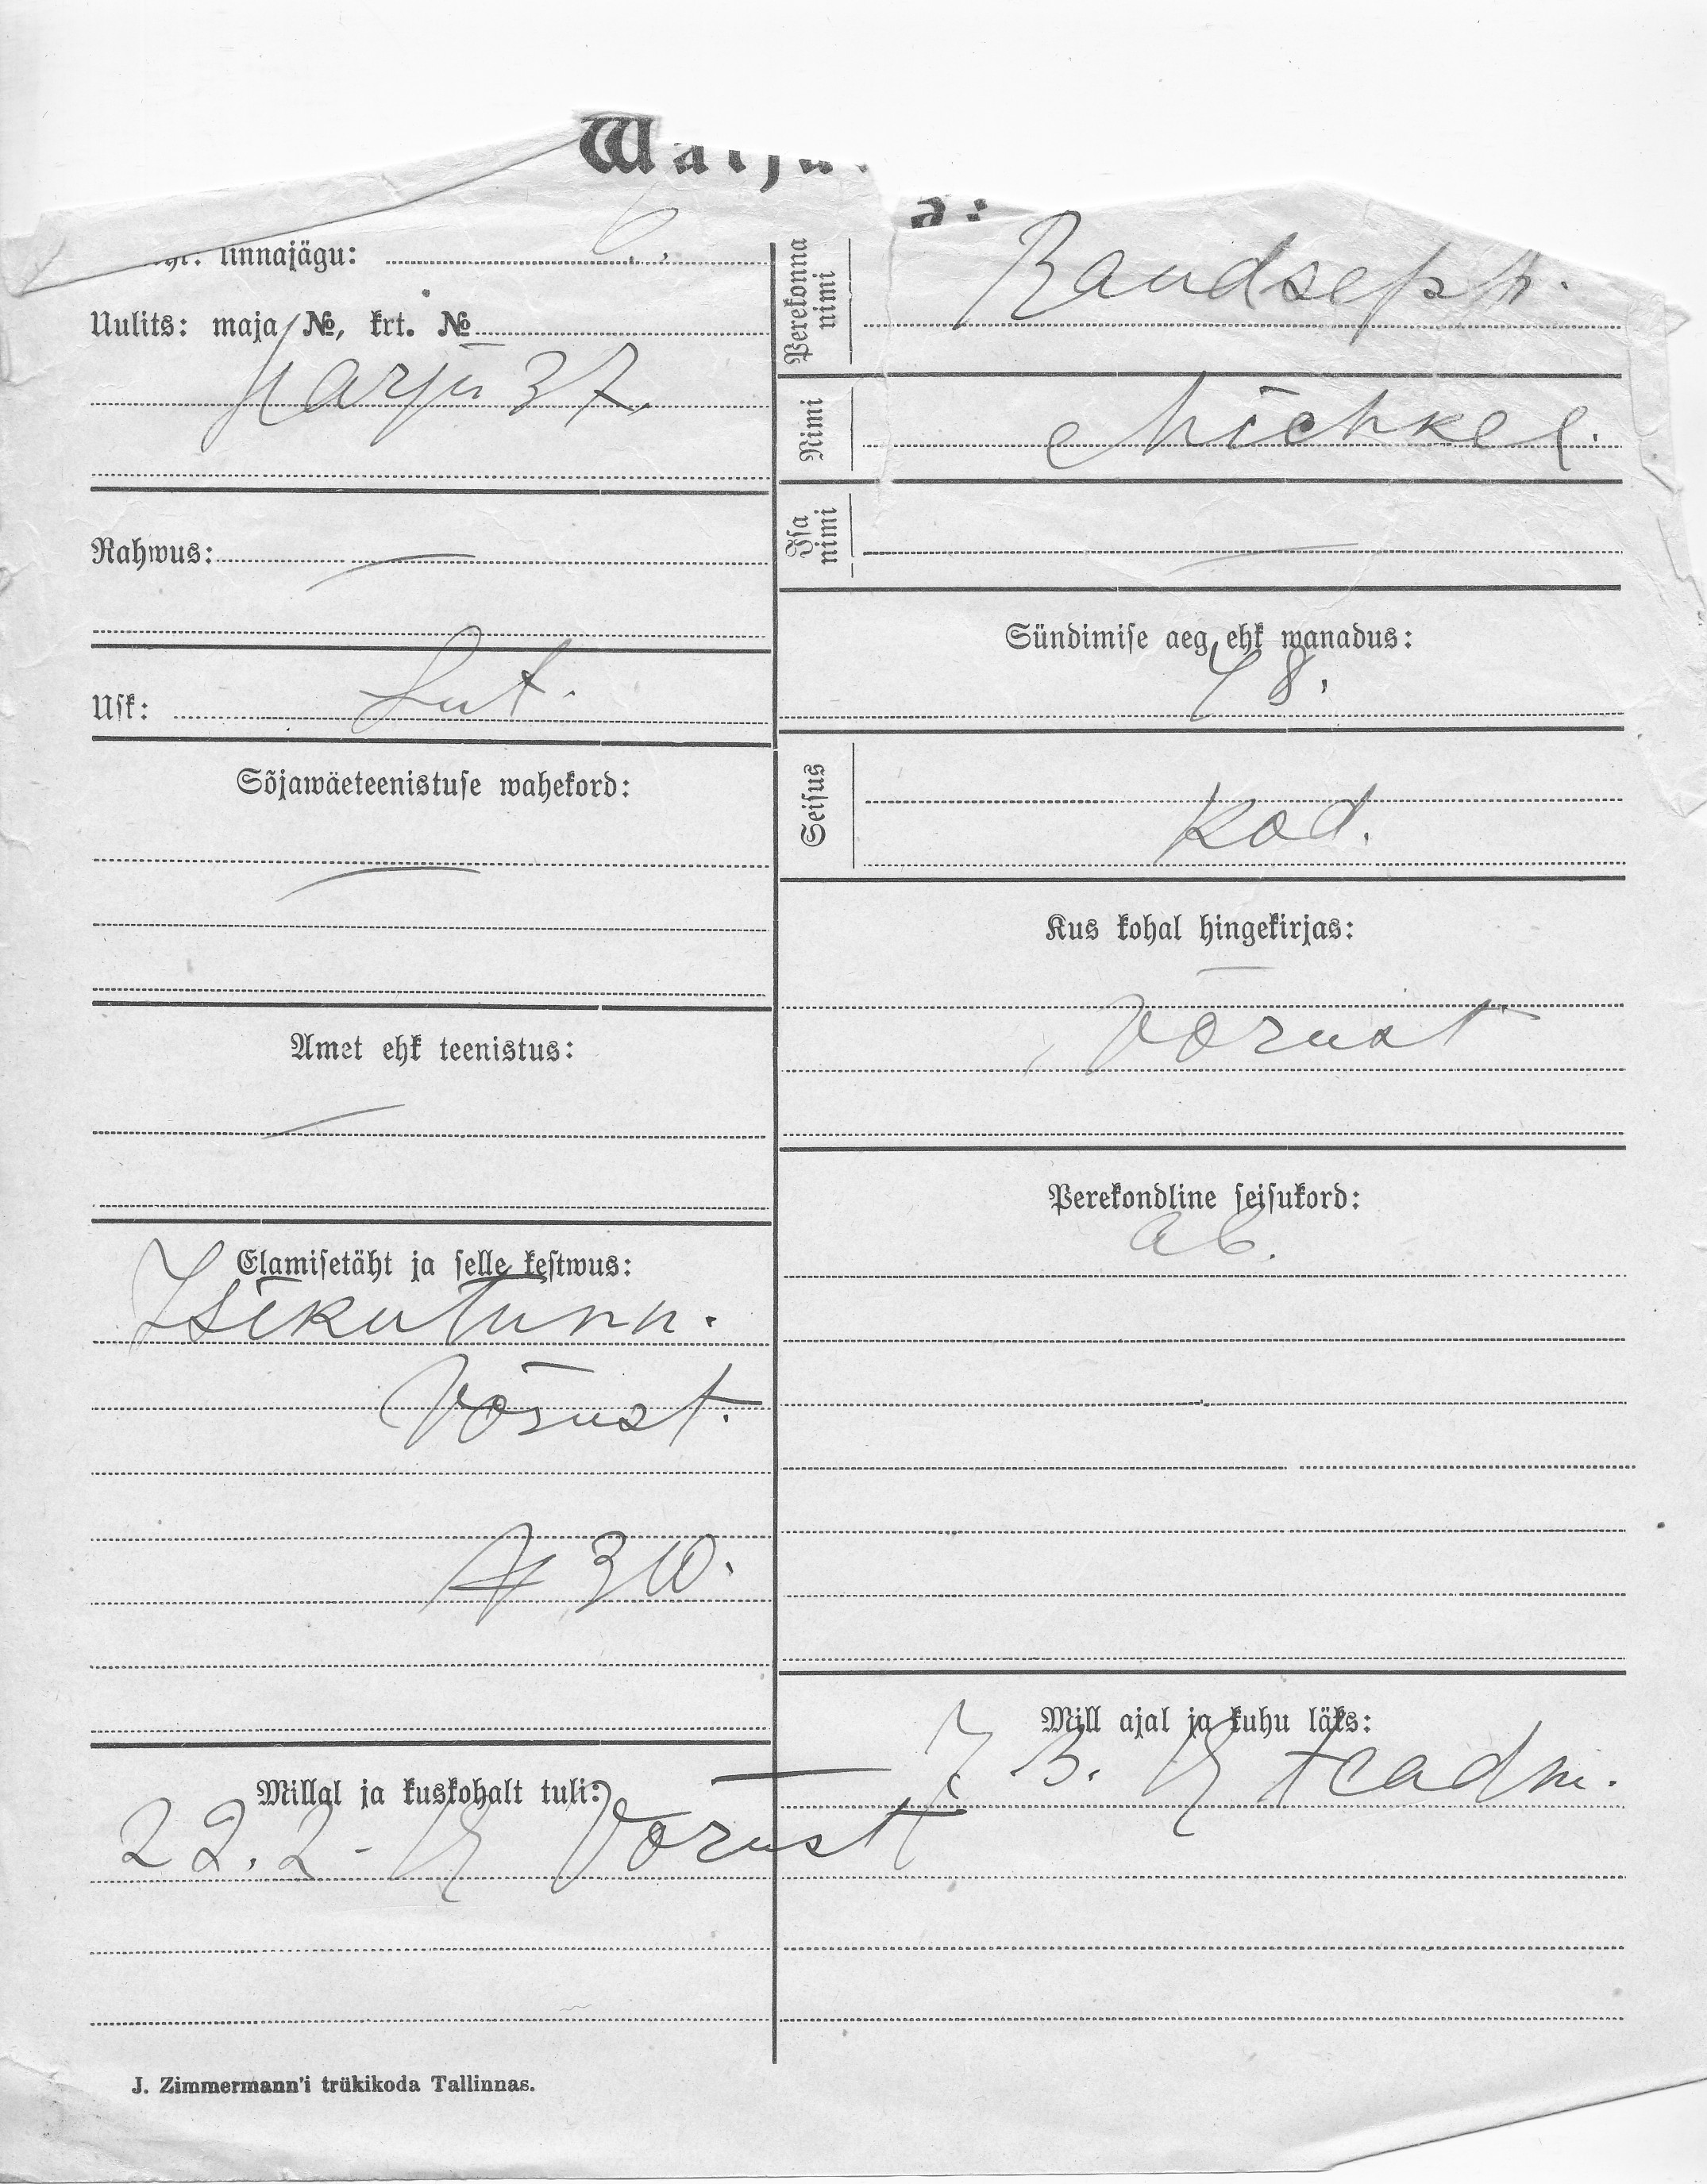 linnajägu: 6.
Uulits: maja №, krt. №
Harju 37.
Rahwus: —
Usk: Lut.
Sõjawäeteenistuse wahekord:
—
Amet ehk teenistus:
—
Elamisetäht ja selle kestwus:
Isikutunn.
Võrust.
№ 310.
Millal ja kuskohalt tuli:
22.2-19 Võrust
J. Zimmermann'i trükikoda Tallinnas.
a:
Perekonna nimi Raudsepp.
Nimi Michkel.
Isa nimi —
Sündimise aeg ehk wanadus:
48.
Seisus
Kod.
Kus kohal hingekirjas:
Võrust
Perekondline seisukord:
ab.
Mill ajal ja kuhu läks:
7 3. 19 teadm.